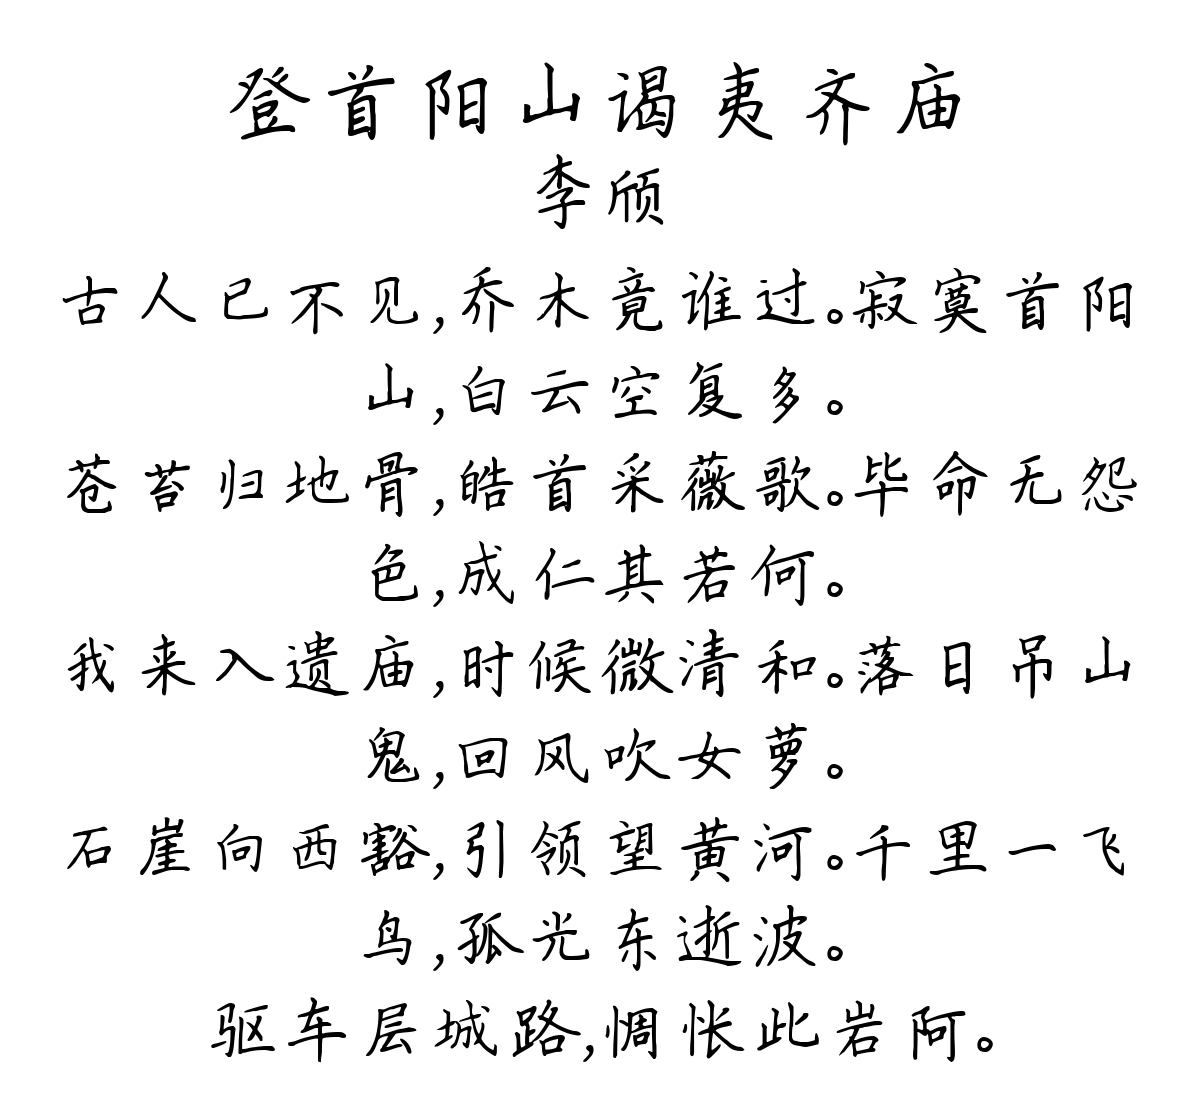 登首阳山谒夷齐庙
李颀
古人已不见,乔木竟谁过。寂寞首阳
山,白云空复多。
苍苔归地骨,皓首采薇歌。毕命无怨
色,成仁其若何。
我来入遗庙,时候微清和。落日吊山
鬼,回风吹女萝。
石崖向西豁,引领望黄河。千里一飞
鸟,孤光东逝波。
驱车层城路,惆怅此岩阿。